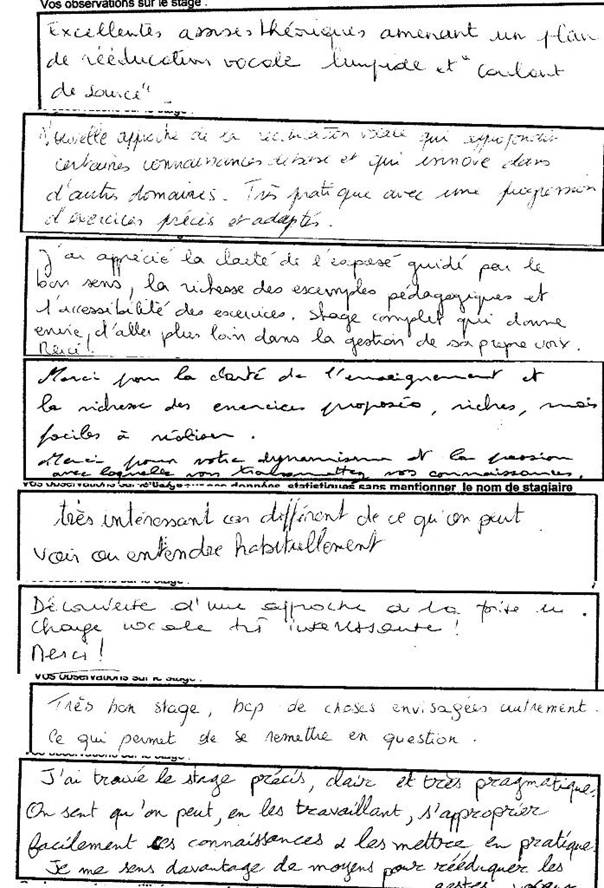 Vos observations sur le stage :
Excellentes assises théoriques amenant un plan
de rééducation vocale limpide et "coulant
de source"
observations sur le stage :
Nouvelle approche de la rééducation vocale qui approfondit
certaines connaissances de base et qui innove dans
d'autres domaines. Très pratique avec une progression
d'exercices précis et adaptés.
J'ai apprécié la clarté de l'exposé guidé par le
bon sens, la richesse des exemples pédagogiques et
l'accessibilité des exercices. Stage complet qui donne
envie d'aller plus loin dans la gestion de sa propre voix.
Merci!
Merci pour la clarté de l'enseignement et
la richesse des exercices proposés, riches, mais
faciles à réaliser.
Merci pour votre dynamisme et la passion
avec laquelle vous transmettez vos connaissances.
données statistiques sans mentionner le nom de stagiaire
très intéressant car différent de ce qu'on peut
voir ou entendre habituellement
Découverte d'une approche de la prise en
charge vocale très intéressante !
Merci !
Vos observations sur le stage :
Très bon stage, bcp de choses envisagées autrement.
Ce qui permet de se remettre en question.
J'ai trouvé le stage précis, clair et très pragmatique.
On sent qu'on peut, en les travaillant, s'approprier
facilement ces connaissances & les mettre en pratique
Je me sens davantage de moyens pour rééduquer les